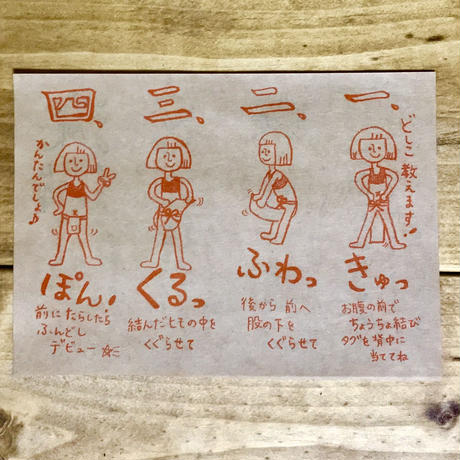 一、
どしこ教えます!
きゅっ
お腹の前で
ちょうちょ結び
タグを背中に
当ててね
二、
ふわっ
後から前へ
股の下を
くぐらせて
三、
くるっ
結んだヒモの中を
くぐらせて
四、
かんたんでしょ♪
ぽん!
前にたらしたら
ふんどし
デビュー☆